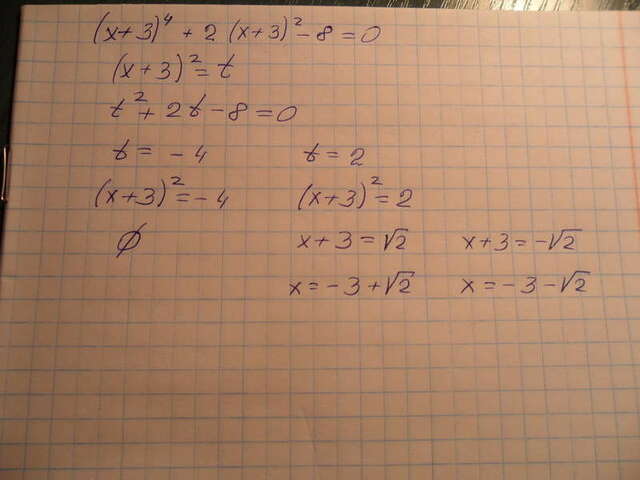 (x+3)⁴ + 2 (x+3)² - 8 = 0
(x+3)² = t
t² + 2t - 8 = 0
t = - 4 t = 2
(x+3)² = - 4 (x+3)² = 2
∅ x+3 = √2 x+3 = -√2
x = - 3 + √2 x = - 3 - √2